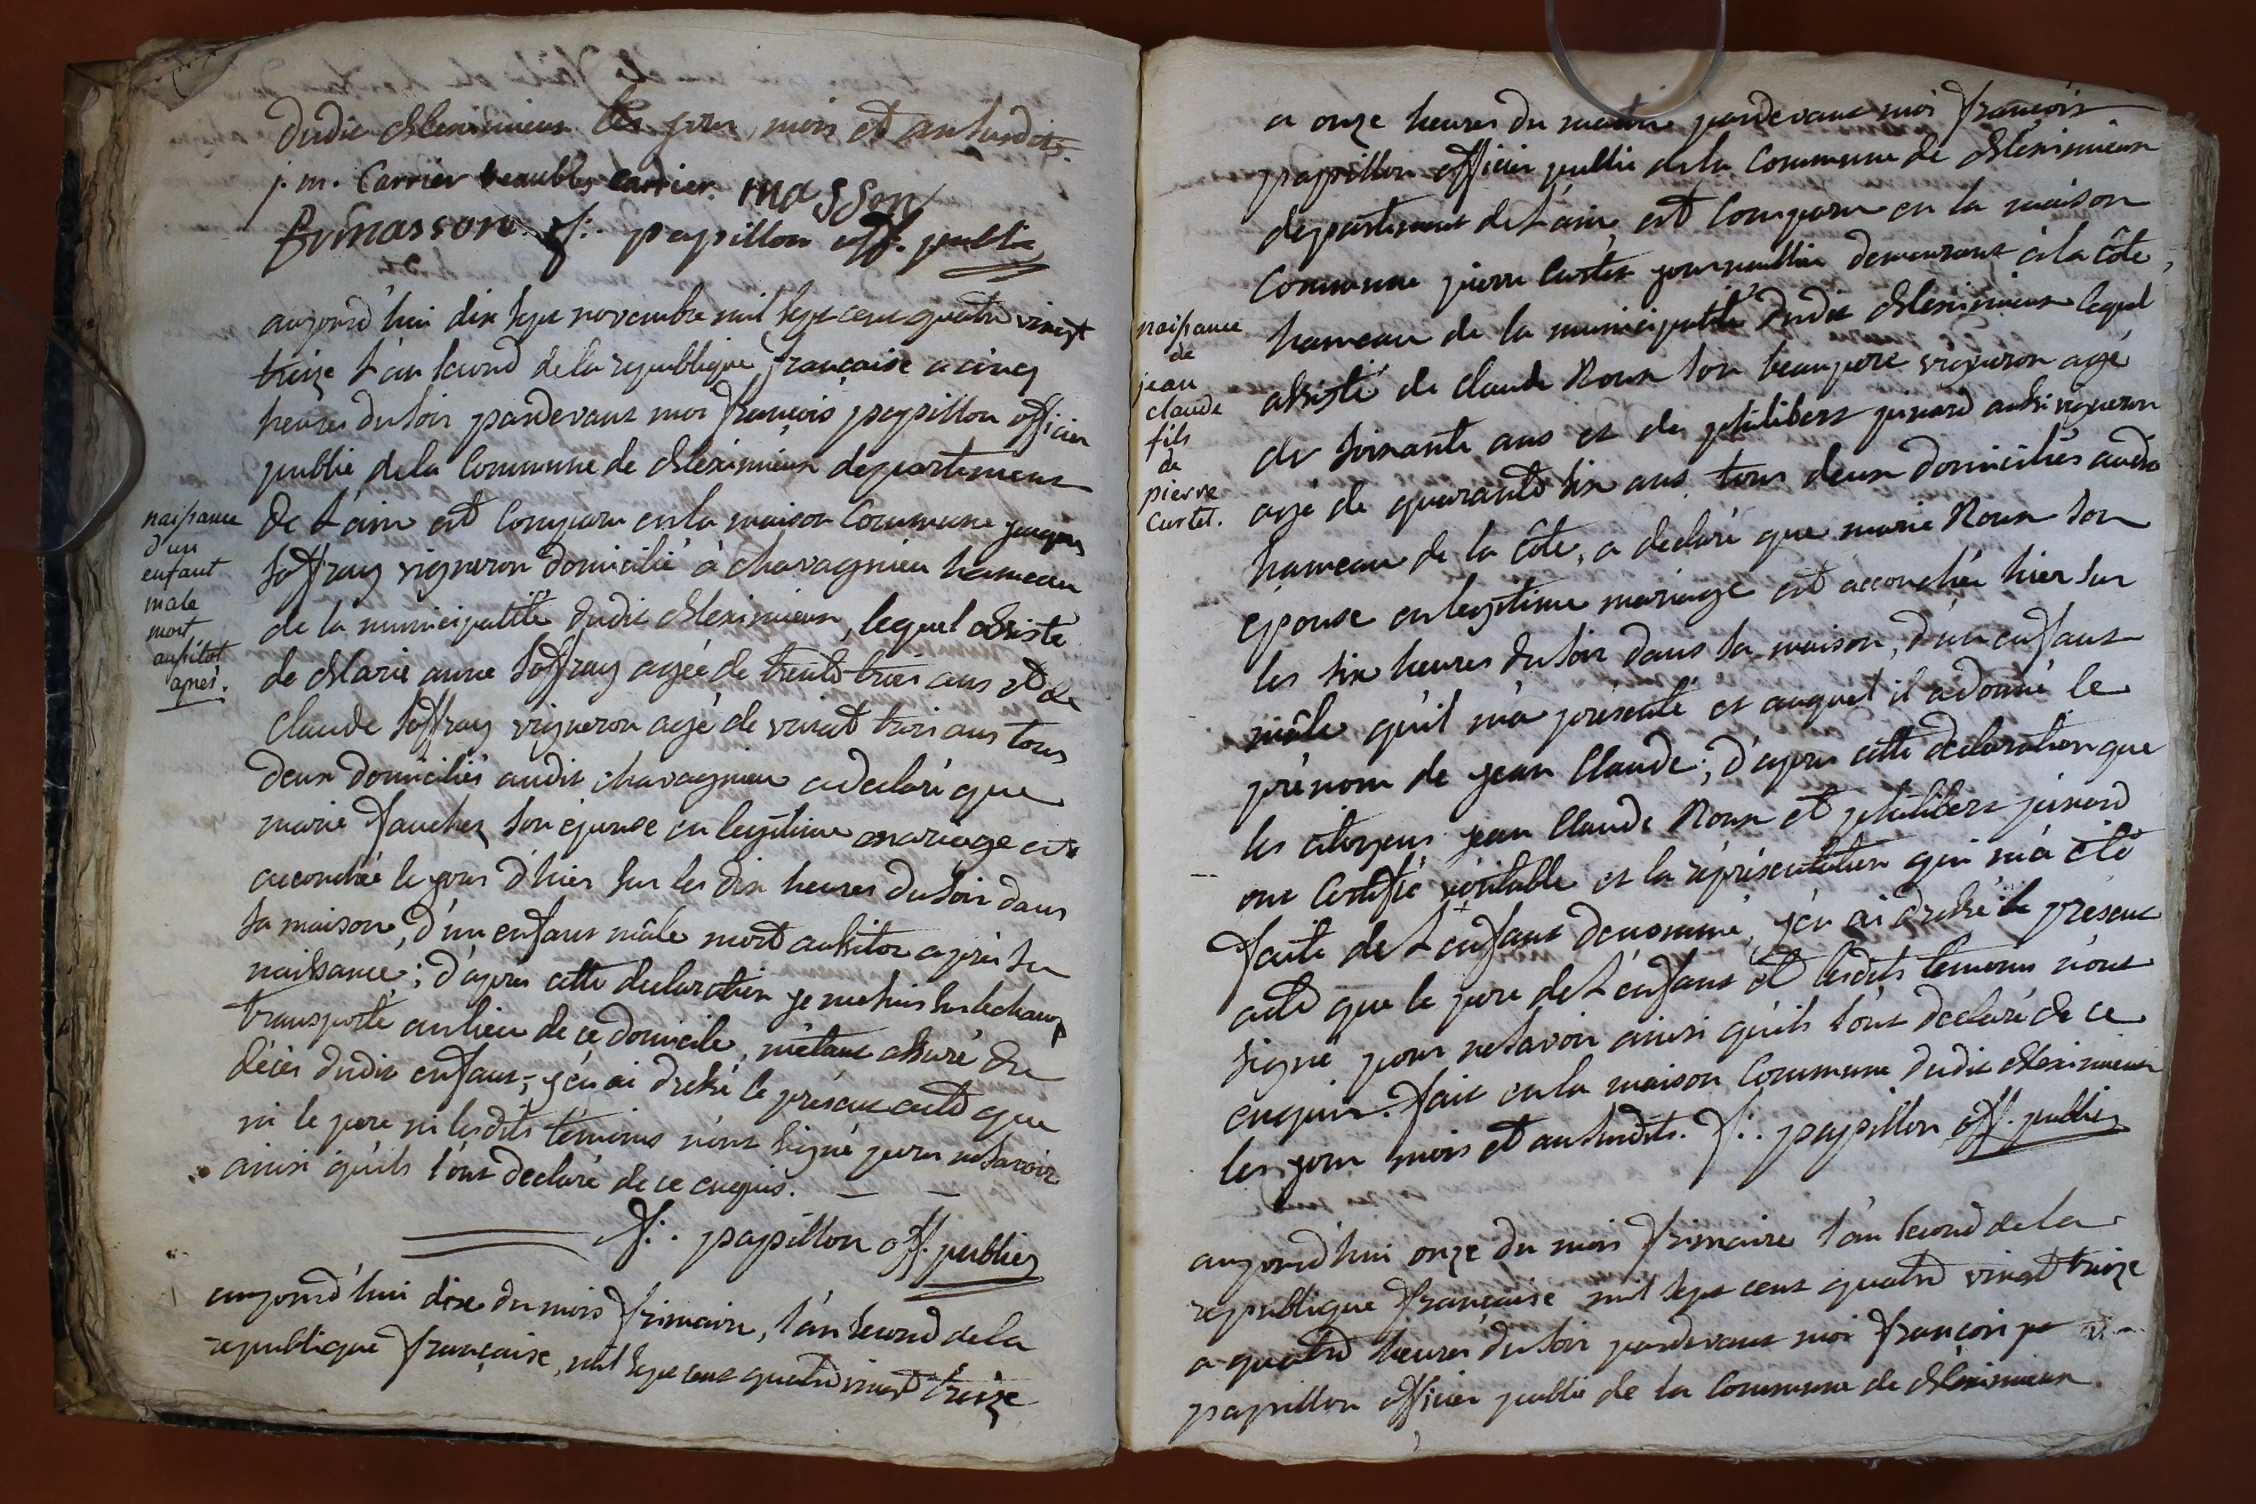 dudit Meximieux les jour, mois et an susdits.
j. m. Carrier beaublez carrier. masson
f: papillon off. public
aujourd'hui dix sept novembre mil sept cent quatre vingt
treize l'an second de la republique française a cinq
heures du soir pardevant moi françois papillon officier
public de la Commune de Meximieux departement
de L'ain est Comparu en la maison Commune jacques
Joffray vigneron domicilié à chavagnieu hameau
de la municipalité dudit Meximieux, lequel assisté
de Marie anne Joffray agée de trente trois ans et de
Claude Joffray vigneron agé de vingt trois ans tous
deux domiciliés audit chavagnieu a declaré que
marie faucher son epouse en legitime mariage est
accouchée le jour d'hier sur les dix heures du soir dans
sa maison, d'un enfant mâle mort aussitot après sa
naissance; d'apres cette declaration je me suis sur le champ
transporté au lieu de ce domicile, m'étant assuré du
décès dudit enfant; j'en ai dressé le présent acte que
ni le pere ni lesdits témoins n'ont signé pour ne savoir
ainsi qu'ils l'ont declaré de ce enquis.
f: papillon off. public
aujourd'hui dix du mois frimaire, l'an second de la
republique française, mil sept cent quatre vingt treize
naissance
d'un
enfant
male
mort
aussitot
apres.
a onze heures du matin pardevant moi françois
papillon officier public de la Commune de Meximieux
departement de L'ain, est Comparu en la maison
Commune pierre Curtet journallier demeurant à la Côte,
hameau de la municipalité dudit Meximieux lequel
assisté de claude Roux son beaupere vigneron agé
de soixante ans et de philibert pinard aussi vigneron
agé de quarante six ans, tous deux domiciliés audit
hameau de la Côte, a declaré que marie Roux son
épouse en legitime mariage est accouchée hier sur
les six heures du soir dans sa maison, d'un enfant
mâle qu'il m'a présenté et auquel il a donné le
prénom de jean Claude; d'apres cette declaration que
les citoyens jean Claude Roux et philibert pinard
ont Certifié véritable et la réprésentation qui m'a été
faite de L'enfant denommé, j'en ai dressé le présent
acte que le pere de L'enfant et lesdits temoins n'ont
signé pour ne savoir ainsi qu'ils l'ont declaré de ce
enquis. fait en la maison Commune dudit Meximieux
les jour mois et an susdits. f: papillon off. public
aujourd'hui onze du mois frimaire l'an second de la
republique française mil sept cent quatre vingt treize
a quatre heures du soir pardevant moi françois pa
papillon officier public de la Commune de Meximieux
naissance
de
jean
claude
fils
de
pierre
Curtet.